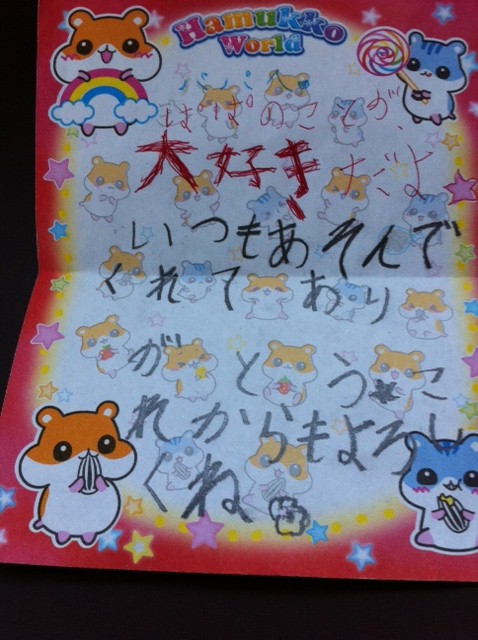 Hamukko
World
ぱぱのことが、
大好きだよ
いつもあそんで
くれてあり
がとうこ
れからもよろし
くね。